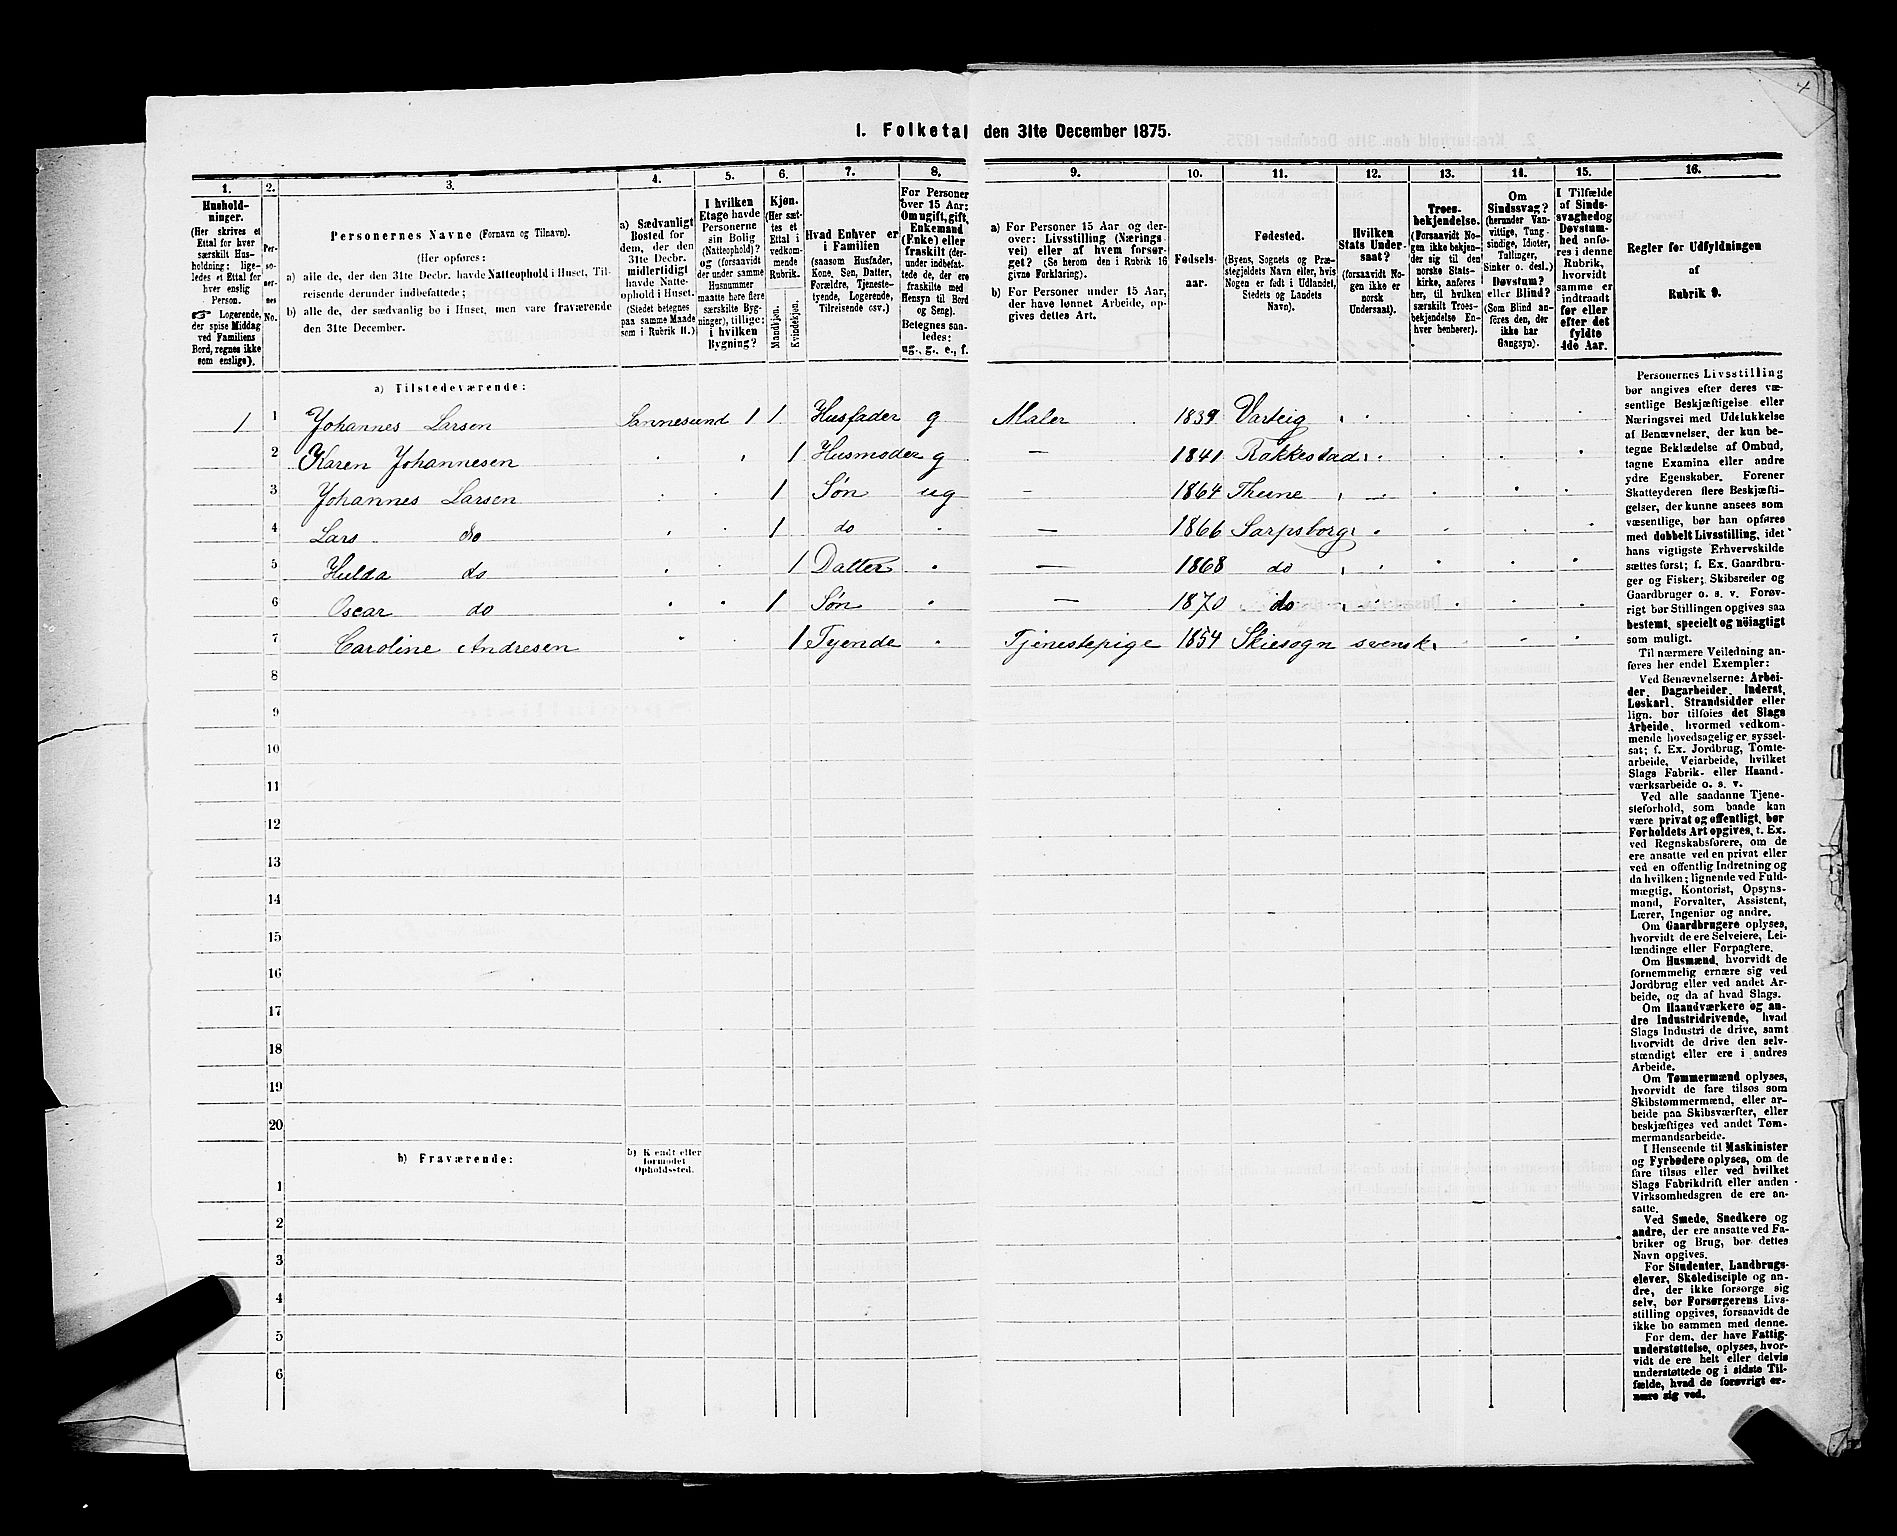 4
1. Folketal den 31te December 1875.
1. 2. 3. 4. 5. 6. 7. 8. 9. 10. 11. 12. 13. 14. 15. 16.
Husholdninger.
(Her skrives et Ettal for hver særskilt Husholdning; ligeledes et Ettal for hver enslig Person.
☞ Logerende, der spise Middag ved Familiens Bord, regnes ikke som enslige).
Personernes No.
Personernes Navne (Fornavn og Tilnavn).
(Her opføres:
a) alle de, der den 31te Decbr. havde Natteophold i Huset, Tilreisende derunder indbefattede;
b) alle de, der sædvanlig bo i Huset, men vare fraværende den 31te December.
a) Sædvanligt Bosted for dem, der den 31te Decbr. midlertidigt havde Natteophold i Huset. (Stedet betegnes paa samme Maade som i Rubrik 11.)
I hvilken Etage havde Personerne sin Bolig (Natteophold)? og (forsaavidt der under samme Husnummer maatte høre flere særskilte Bygninger), tillige: i hvilken Bygning?
Kjøn.
(Her sættes et Ettal i vedkommende Rubrik.
Mandkjøn. Kvindekjøn.
Hvad Enhver er i Familien
(saasom Husfader, Kone, Søn, Datter, Forældre, Tjenestetyende, Logerende, Tilreisende osv.)
For Personer over 15 Aar: Om ugift, gift, Enkemand (Enke) eller fraskilt (derunder indbefattede de, der ere fraskilte med Hensyn til Bord og Seng).
Betegnes saaledes: ug., g., e., f.
a) For Personer 15 Aar og derover: Livsstilling (Næringsvei) eller af hvem forsørget? (Se herom den i Rubrik 16 givne Forklaring).
b) For Personer under 15 Aar, der have lønnet Arbeide, opgives dettes Art.
Fødselsaar.
Fødested.
(Byens, Sognets og Præstegjeldets Navn eller, hvis Nogen er født i Udlandet, Stedets og Landets Navn).
Hvilken Stats Undersaat?
(forsaavidt Nogen ikke er norsk Undersaat).
Troesbekjendelse.
(Forsaavidt Nogen ikke bekjender sig til den norske Statskirke, anføres her, til hvilken særskilt Troesbekjendelse Enhver henhører).
Om Sindssvag? (herunder Vanvittige, Tungsindige, Idioter, Tullinger, Sinker o. desl.) Døvstum? eller Blind? (Som Blind anføres den, der ikke har Gangsyn).
I Tilfælde af Sindssvaghed og Døvstumhed anføres i denne Rubrik, hvorvidt samme er indtraadt før eller efter det fyldte 4de Aar.
Regler for Udfyldningen
af
Rubrik 9.
a) Tilstedeværende:
1 1 Johannes Larsen Sannesund 1 1 Husfader g Maler 1839 Varteig
2 Karen Johannesen 1 Husmoder g — 1841 Rakkestad
3 Johannes Larsen 1 Søn ug - 1864 Thune
4 Lars do 1 do — 1866 Sarpsborg
5 Hulda do 1 Datter — 1868 do
6 Oscar do 1 Søn — 1870 do
7 Caroline Andresen 1 Tyende Tjenestepige 1854 Skiesogn svensk
8
9
10
11
12
13
14
15
16
17
18
19
20
b) Fraværende:
b) Kjendt eller formodet Opholdssted.
1
2
3
4
5
6
Personernes Livsstilling
bør angives efter deres væ-
sentlige Beskjæftigelse eller
Næringsvei med Udelukkelse
af Benævnelser, der kun be-
tegne Beklædelse af Ombud,
tagne Examina eller andre
ydre Egenskaber. Forener
Skatteyderen flere Beskjæfti-
gelser, der kunne ansees som
væsentlige, bør han opføres
med dobbelt Livsstilling, idet
hans vigtigste Erhvervskilde
sættes først; f. Ex. Gaardbru-
ger og Fisker; Skibsreder og
Gaardbruger o. s. v. Forøv-
rigt bør Stillingen opgives saa
bestemt, specielt og nöiagtigt
som muligt.
Til nærmere Veiledning an-
føres her endel Exempler:
Ved Benævnelserne: Arbei-
der, Dagarbeider, Inderst,
Løskarl, Strandsidder eller
lign. bør tilføies det Slags
Arbeide, hvormed vedkom-
mende hovedsagelig er syssel-
sat; f. Ex. Jordbrug, Tomte-
arbeide, Veiarbeide, hvilket
Slags Fabrik- eller Haand-
værksarbeide o. s. v.
Ved alle saadanne Tjene-
steforhold, som baade kan
være privat og offentligt, bør
Forholdets Art opgives, t. Ex.
ved Regnskabsførere, om de
ere ansatte ved en privat eller
ved en offentlig Indretning og
da hvilken; lignende ved Fuld-
mægtig, Kontorist, Opsyns-
mand, Forvalter, Assistent,
Lærer, Ingeniør og andre.
Om Gaardbrugere oplyses,
hvorvidt de ere Selveiere, Lei-
lændinge eller Forpagtere.
Om Husmænd, hvorvidt de
fornemmelig ernære sig ved
Jordbrug eller ved andet Ar-
beide, og da af hvad Slags.
Om Haandværkere og an-
dre Industridrivende, hvad
Slags Industri de drive, samt
hvorvidt de drive den selv-
stændigt eller ere i andres
Arbeide.
Om Tømmermænd oplyses,
hvorvidt de fare tilsøs som
Skibstømmermænd, eller ar-
beide paa Skibsværfter, eller
beskjæftiges ved andet Tøm-
mermandsarbeide.
I Henseende til Maskinister
og Fyrbødere oplyses, om de
fare tilsøs eller ved hvilket
Slags Fabrikdrift eller anden
Virksomhedsgren de ere an-
satte.
Ved Smede, Snedkere og
andre, der ere ansatte ved Fa-
briker og Brug, bør dettes
Navn opgives.
For Studenter, Landbrugs-
elever, Skoledisciple og an-
dre, der ikke forsørge sig
selv, bør Forsørgerens Livs-
stilling opgives, forsaavidt de
ikke bo sammen med denne.
For dem, der have Fattig-
understøttelse, oplyses, hvor-
vidt de ere helt eller delvis
understøttede og i sidste Til-
fælde, hvad de forøvrigt er-
nære sig ved.